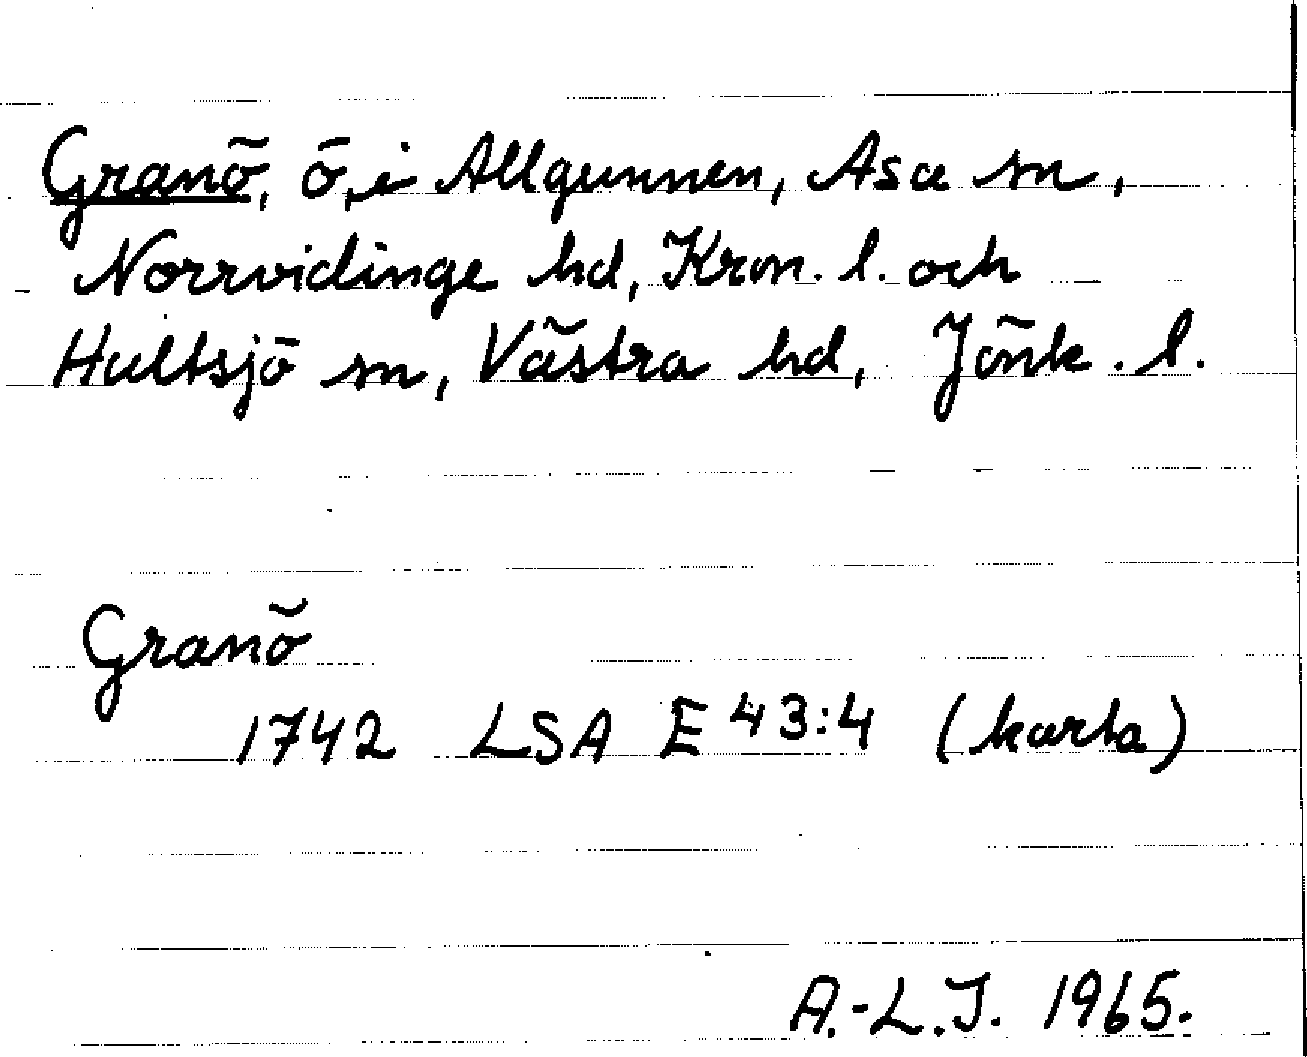 Granö, ö, i Allgunnen, Asa sn,
Norrvidinge hd, Kron. l. och
Hultsjö sn, Västra hd, Jönk. l.
Granö
1742 LSA E 43:4 (karta)
A.-L.J. 1965.